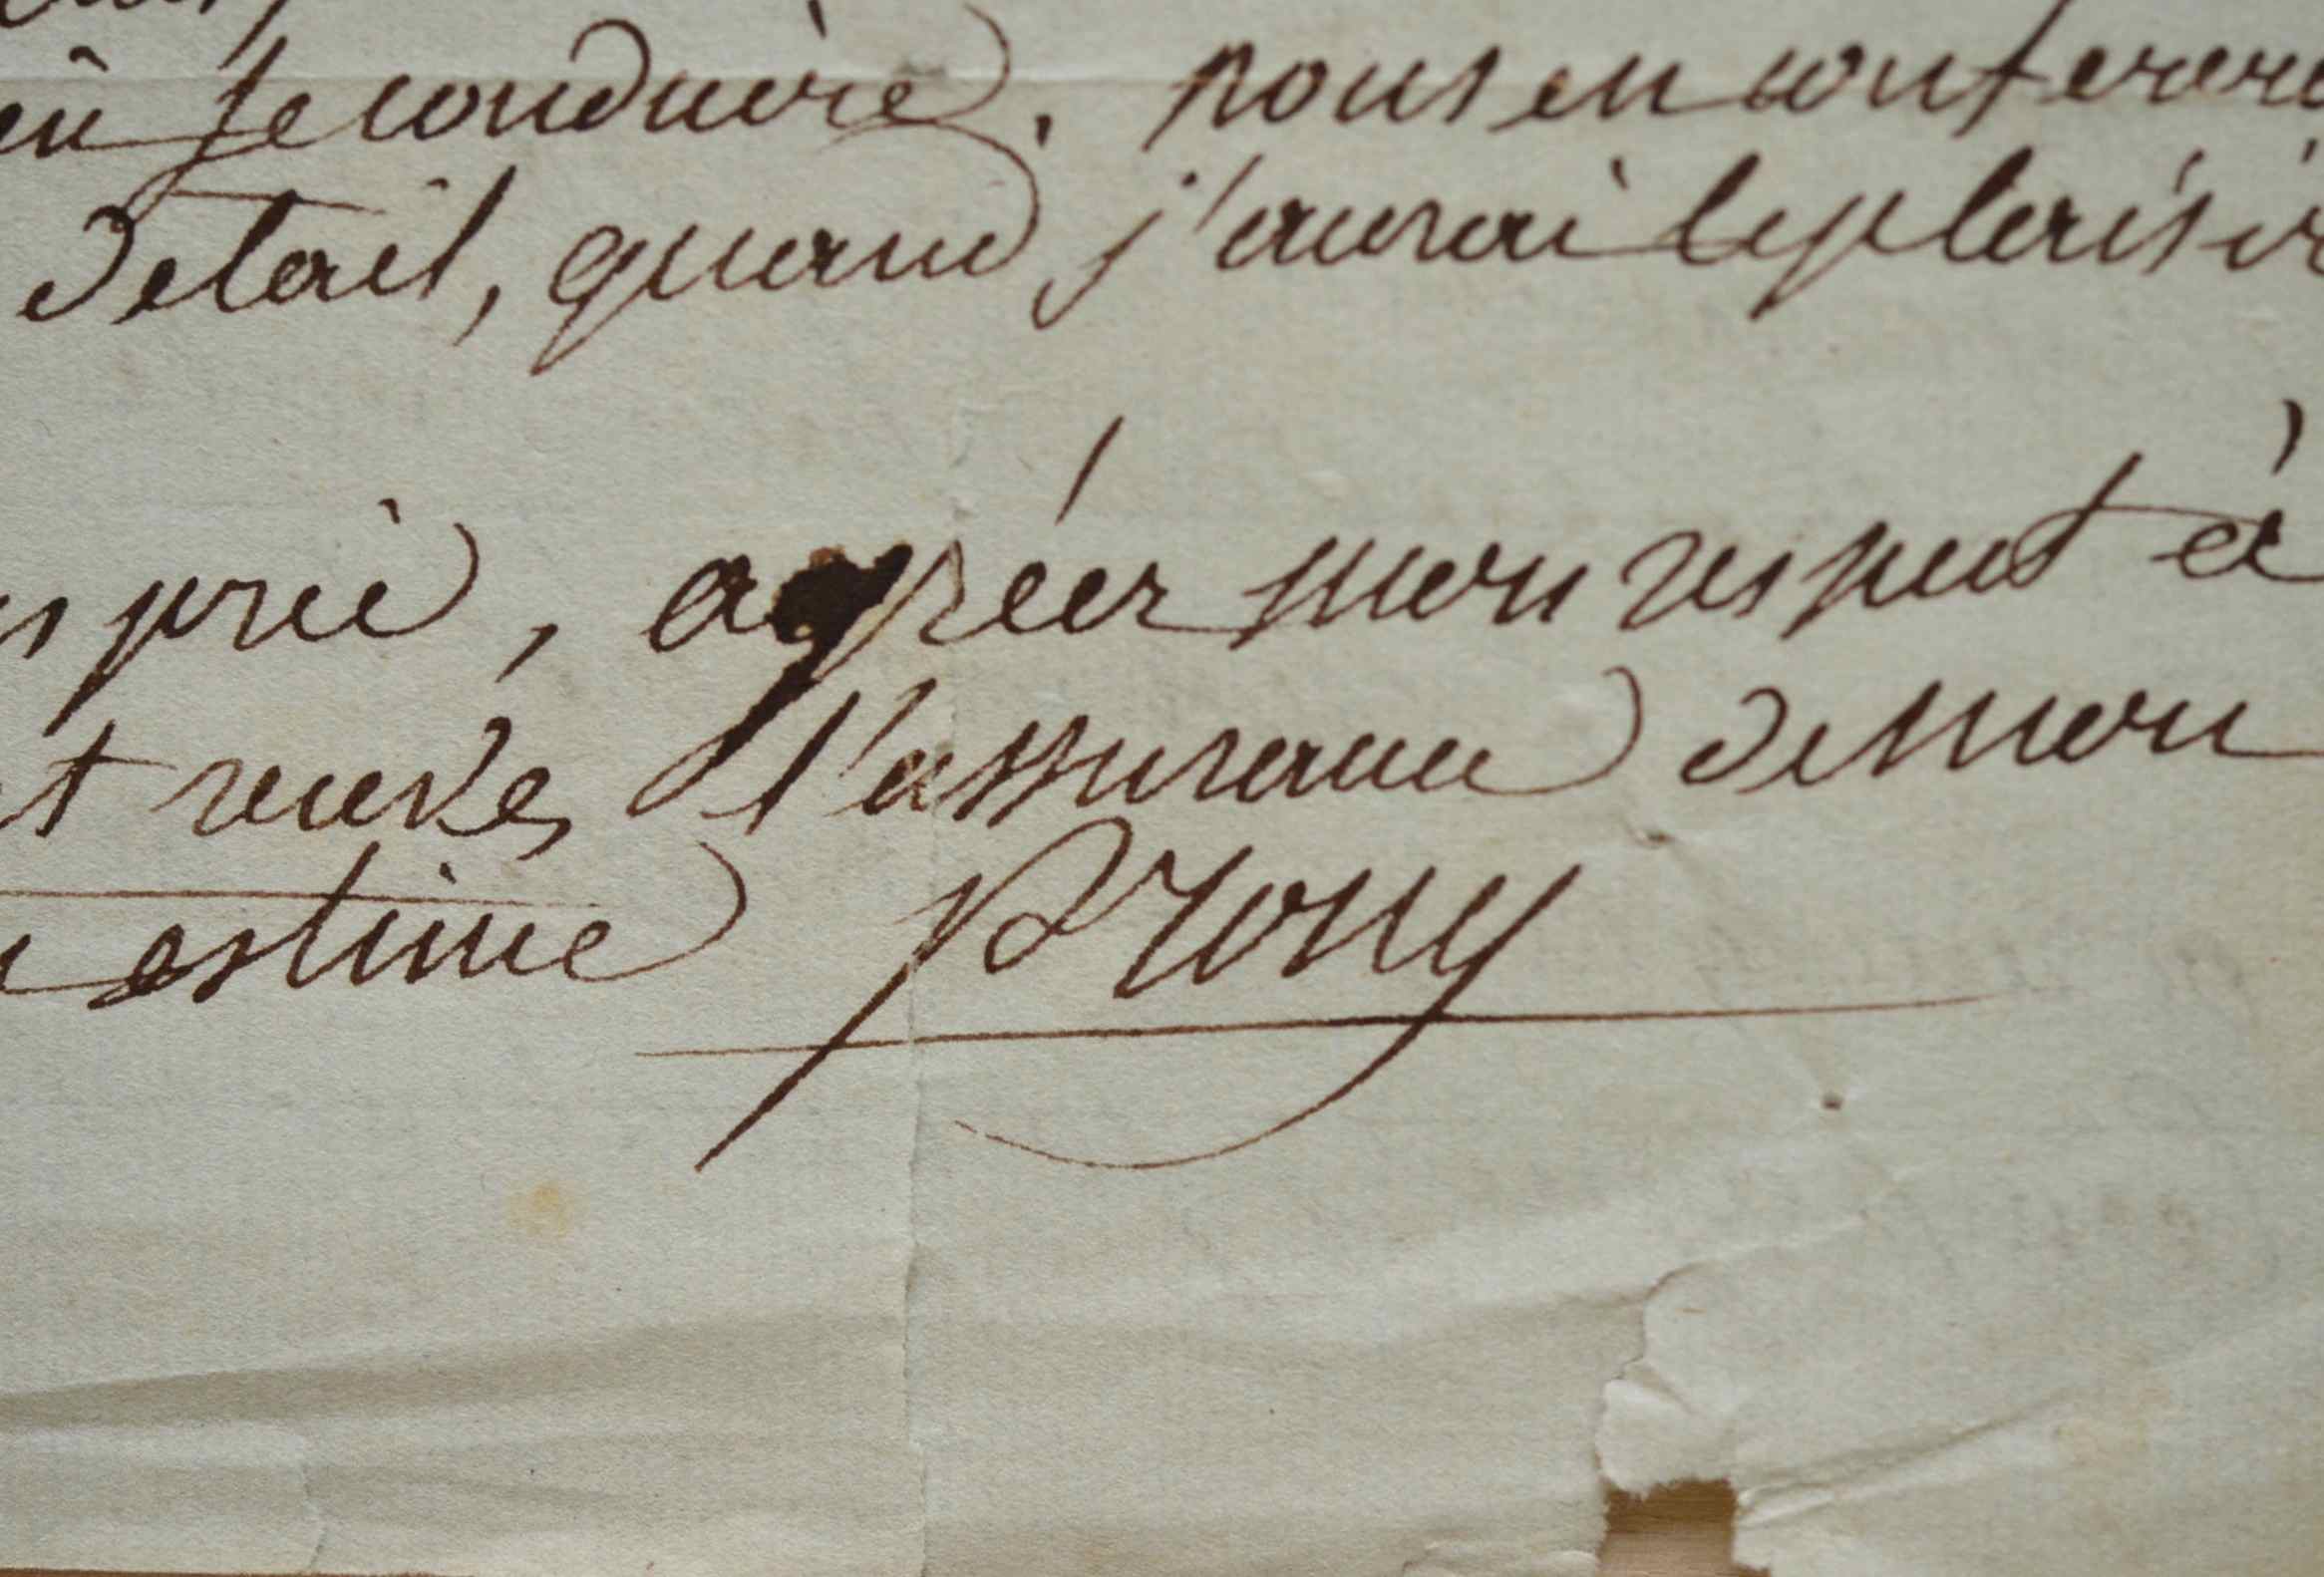 se conduire. nous en conferero
detail, quand j'aurai le plaisir
prie, agréer mon respect à
recevés l'assurance de mon
estime Prony